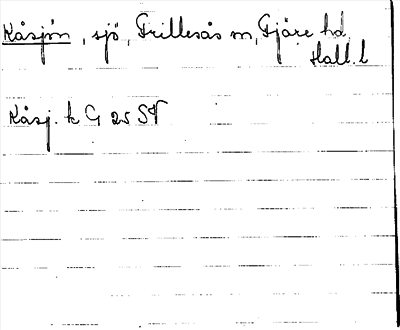 Kåsjön, sjö, Frillesås sn, Fjäre hd
Hall. l
Kåsj. k G 25 SV